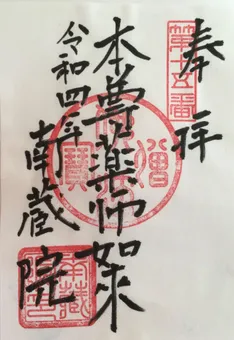 奉拝
第十五番
本尊薬師如来
令和四年
南蔵院
南蔵